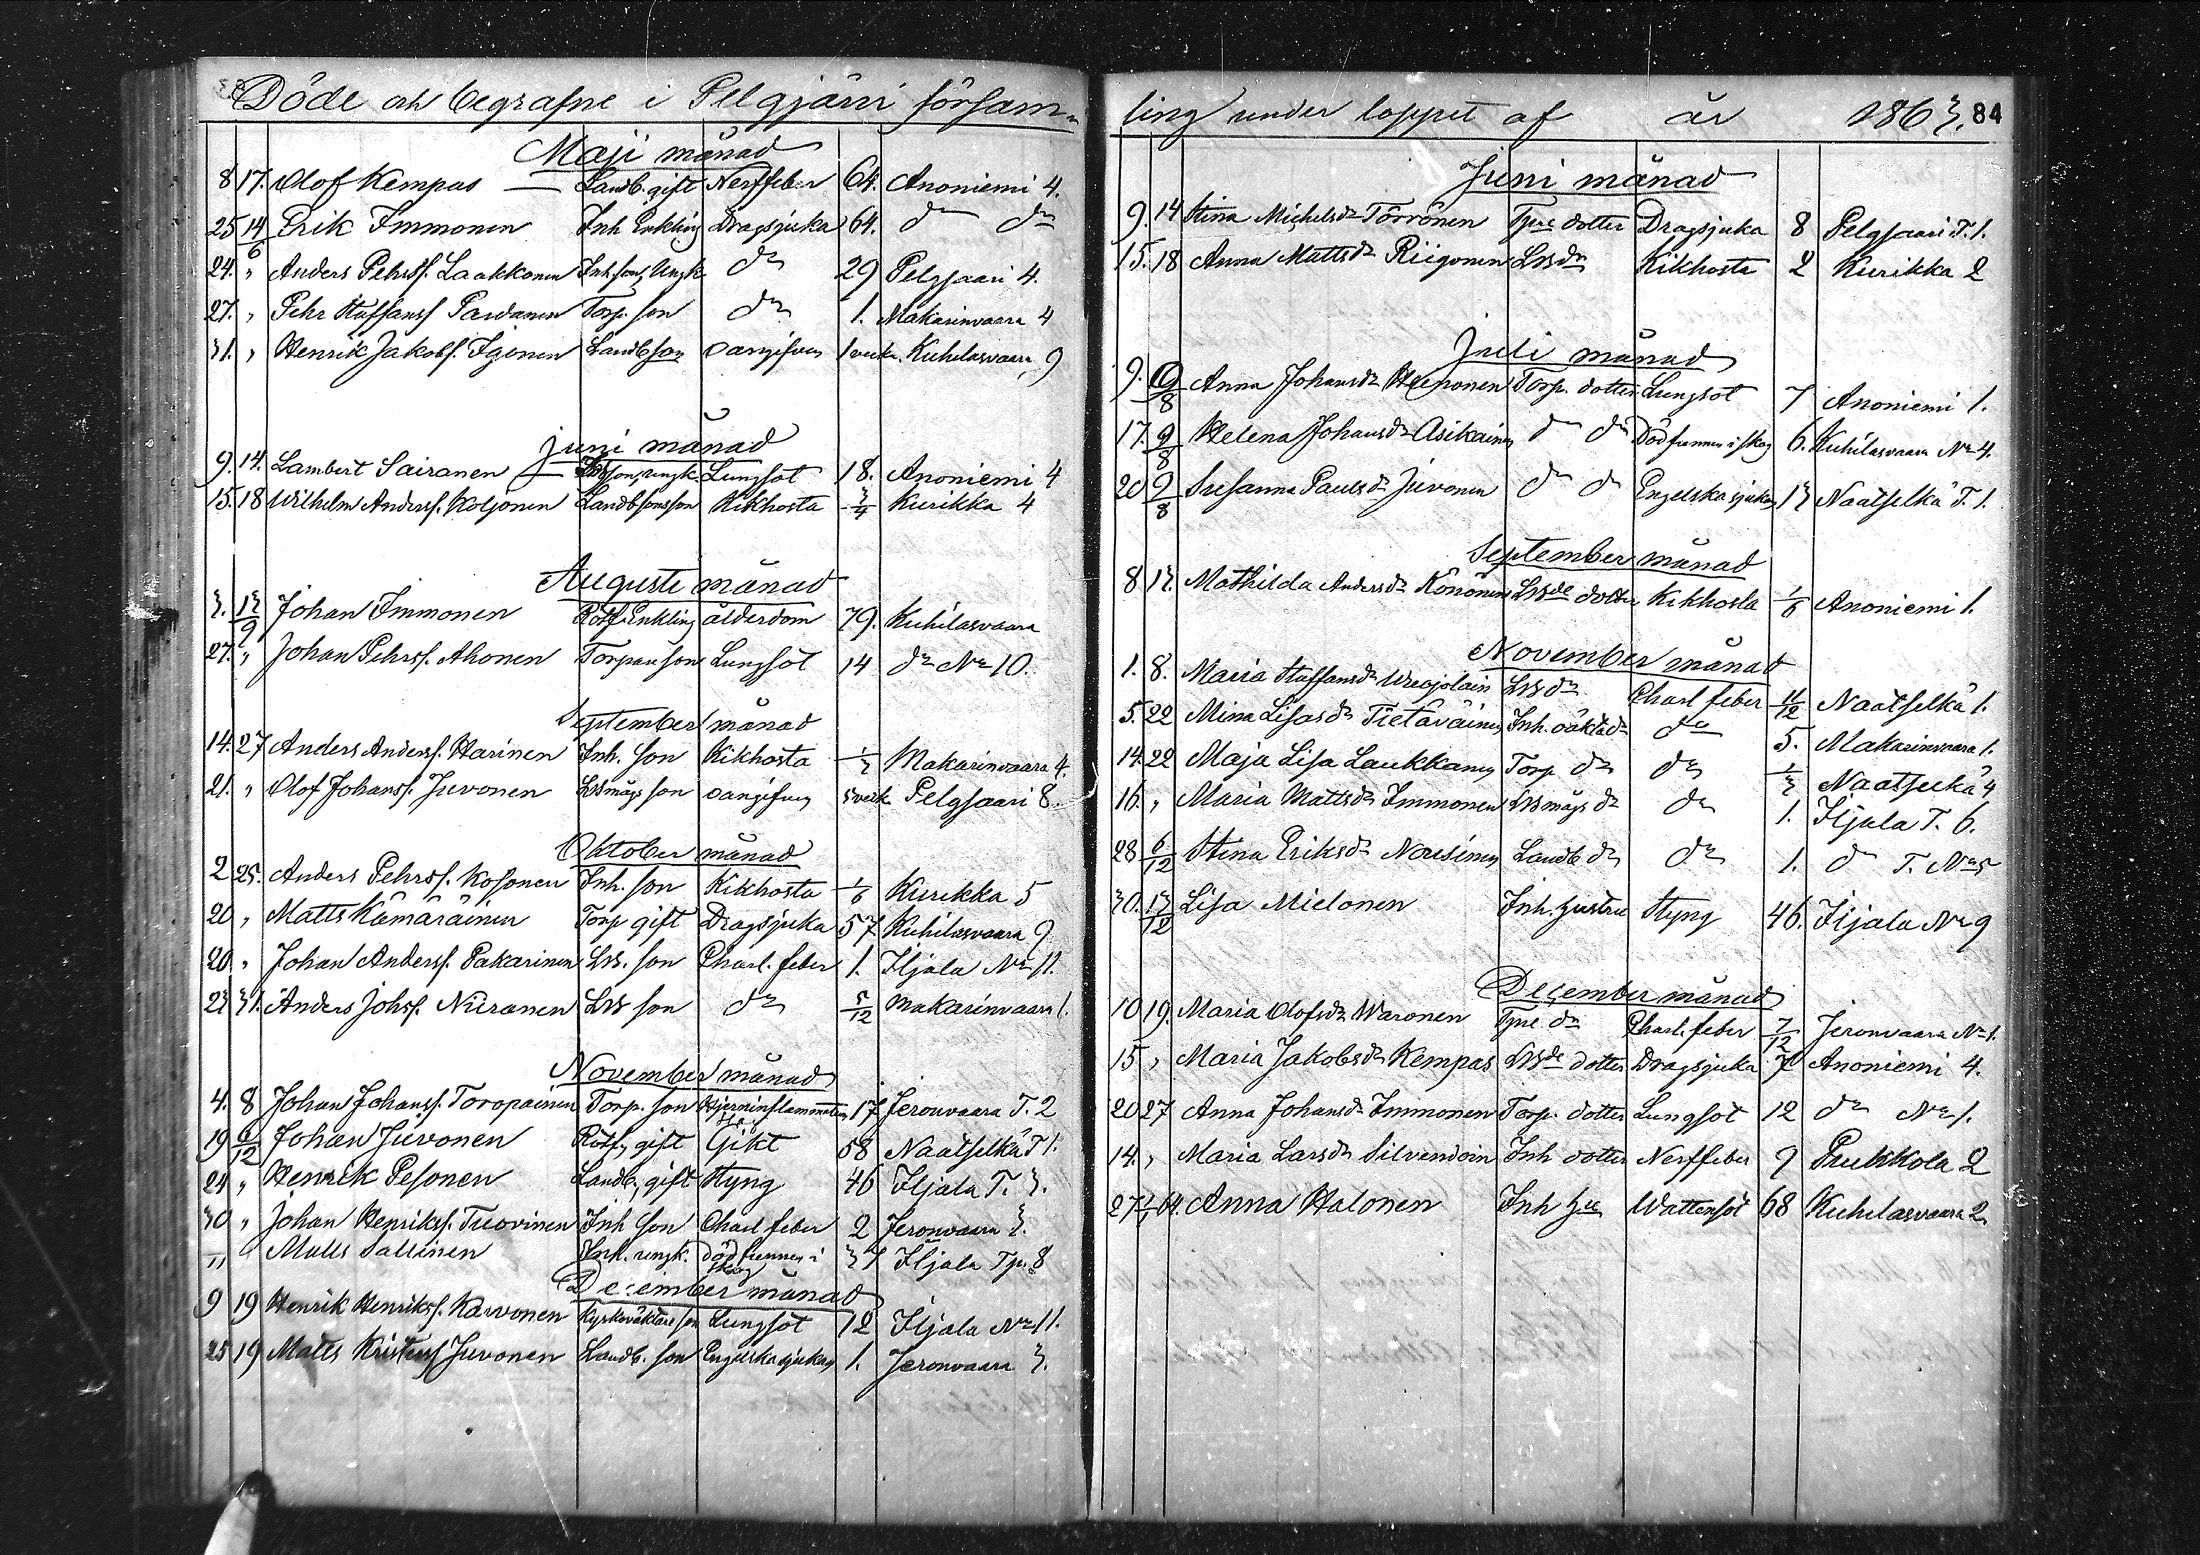 Döde och begrafne i Pelgjärvi försam-
Maji månad
8 17. Olof Kempas — Landb. gift Nerffeber 64. Anoniemi 4.
25 14/6 Erik Immonen Inh Enkling Dragsjuka 64. do do
24. " Anders Pehrsf. Laakkonen Inh son, Ungk do 29 Pelgjaari 4.
27. " Pehr Staffansf Pardanen Torp. son do 1. Makarinvaara 4
31. " Henrik Jakobsf. Igonen Landbson oangifven 1 vecka Kuhilasvaara 9
Juni månad
9. 14. Lambert Sairanen — son, ungk Lungsot 18. Anoniemi 4
15. 18 Wilhelm Andersf. Koljonen Landbsonsson Kikhosta 3/4 Kurikka 4
Augusti månad
3. 13/9 Johan Immonen Rotf. Enkling ålderdom 79. Kuhilasvaara
27. " Johan Pehrsf. Ahonen Torpareson Lungsot 14 do No 10.
September månad
14. 27 Anders Andersf. Harinen Inh. son Kikhosta 1/3 Makarinvaara 4.
21. " Olof Johansf. Juvonen Lbsmågs son oangifven veck. Pelgjaari 8.
Oktober månad
2 25. Anders Pehrsf. Kosonen Inh. son Kikhosta 1/6 Kurikka 5
20 " Matts Kämäräinen Torp gift Dragsjuka 57 Kuhilasvaara 9
20 " Johan Andersf. Pakarinen Lbs. son Charl. feber 1. Iljala No 11.
23 31. Anders Johsf. Niiranen Lbs son do 5/12 Makarinvaara 1.
November månad
4. 8 Johan Johansf. Toropainen Torp. son Hjerninflammation 17 Jeronvaara T. 2
19 6/12 Johan Juvonen Rotf, gift Gikt 58 Naatselkä T 1.
24 " Henrik Pesonen Landb, gift Styng 46 Iljala T. 3.
30 " Johan Henriksf. Tuovinen Inh son Charl feber 2 Jeronvaara 3.
" " Matts Sallinen Inh. ungk. död funnen i skog 37 Iljala Tp. 8
December månad
9 19 Henrik Henriksf. Karvonen Kyrkoväktare son Lungsot 12 Iljala No 11.
25 19 Matts Juvonen Landb. son Engelska sjukan 1. Jeronvaara 3.
ling under loppet af år 1863. 84
Juni månad
9. 14 Stina Michelsdr Törrönen Tjne dotter Dragsjuka 8 Pelgjaari T. 1.
15. 18 Anna Mattsdr Riigonen Lbsdr Kikhosta 2 Kurikka 2
Juli månad
9. 9/8 Anna Johansdr Heponen Torp. dotter Lungsot 7 Anoniemi 1.
17. 9/8 Helena Johansdr Asikainen do do Död funnen i skog 6. Kuhilasvaara No 4.
20 9/8 Susanna Paulsdr Juvonen do do Engelska sjukan 13 Naatselkä T. 1.
September månad
8 13. Mathilda Andersdr Könönen Lbsde dotter Kikhosta 1/6 Anoniemi 1.
November månad
1. 8. Maria Staffansdr Lbs dr Charl feber 11/12 Naatselkä 1.
5. 22 Mina Lisasdr Tietäväinen Inh. do 5. Makarinvaara 1.
14. 22 Maja Lisa Laukkanen Torp dr do 1/3 Naatselkä 4
16. " Maria Mattsdr Immonen Lbsmågs dr do 1. Iljala T. 6.
28 6/12 Stina Eriksdr Nousinen Landb dr do 1. do T. No 5
30. 13/12 Lisa Mielonen Inh. hustru Styng 46. Iljala No 9
December månad
10 19. Maria Olofsdr Waronen Tjne dr Charl. feber 7/12 Jeronvaara No 1.
15 " Maria Jakobsdr Kempas Lbsde dotter Dragsjuka 7 Anoniemi 4.
20 27 Anna Johansdr Immonen Torp. dotter Lungsot 12 do No 1.
14. " Maria Larsdr Silvendoin Inh dotter Nerffeber 9 Puukkola 2
27 1/1 64. Anna Halonen Inh hu Wattensot 68 Kuhilasvaara 2